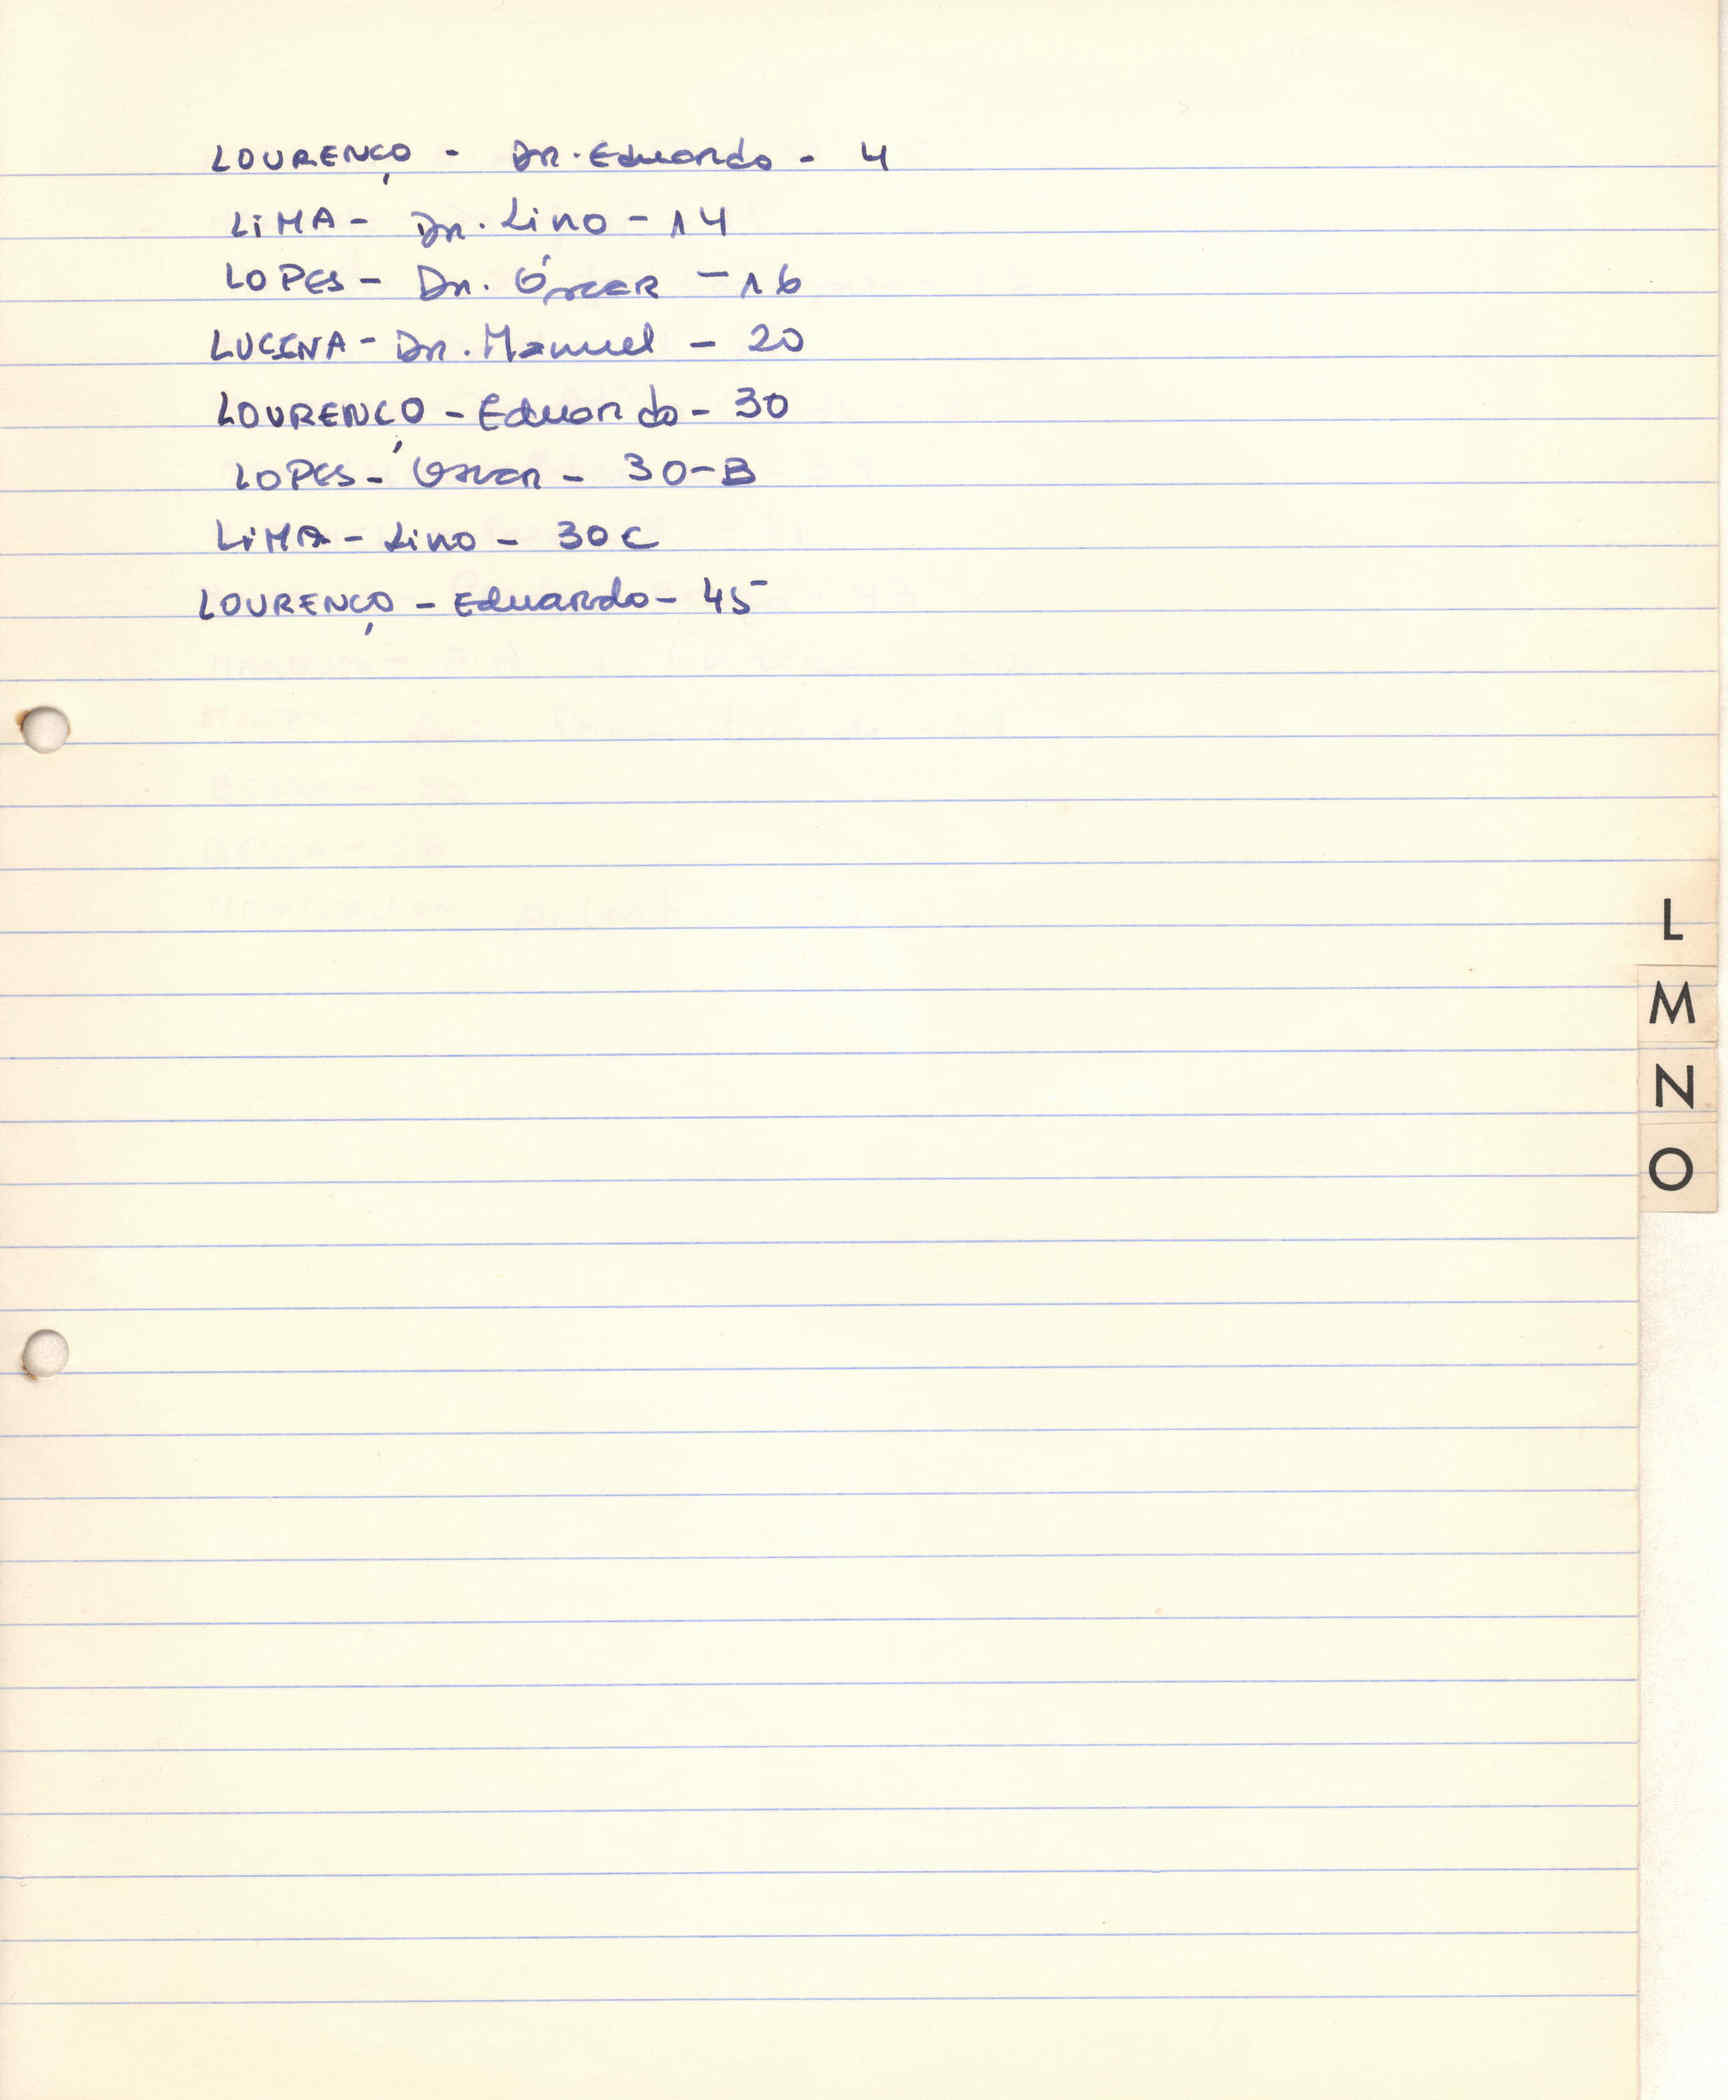 LOURENÇO - Dr. Eduardo - 4
LiMA - Dr. Lino - 14
LOPES - Dr. Óscar - 16
LUCENA - Dr. Manuel - 20
LOURENÇO - Eduardo - 30
LOPES - Óscar - 30-B
LiMA - Lino - 30C
LOURENÇO - Eduardo - 45
L
M
N
O